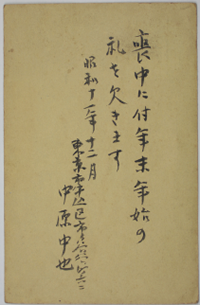 喪中に付年末年始の
礼を欠きます
昭和十一年十二月
東京市牛込区市谷
中原中也